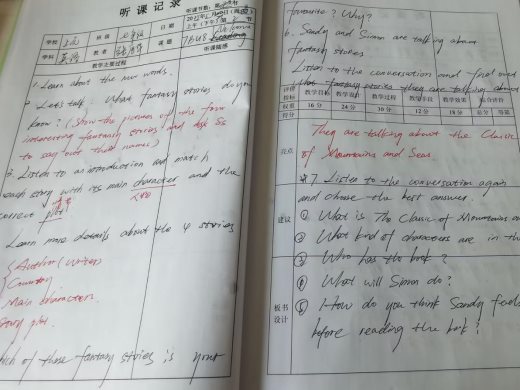 听课记录
学校
班级 七年级
日期
听课节数: 第
学科 英语
教者
课题 7BU8 Reading
教学主要过程
听课随感
1. Learn about the new words.
2. Let's talk. What fantasy stories do you
know? (Show the pictures of the four
interesting fantasy stories and ask Ss
to say out their names)
3. Listen to an introduction and match
each story with its main character and the
correct plot.
人物
Learn more details about the 4 stories
Author (Writer)
Country
Main characters
Story plot.
Which of these fantasy stories is your
favourite? Why?
6. Sandy and Simon are talking about
fantasy stories
Listen to the conversation and find out
what fantasy stories they are talking about
评价指标 教学目标 教学过程 教学手段 教学效果 综合评价
权重 16分 24分 30分 12分 18分 总分 等第
得分
亮点
They are talking about the Classic
of Mountains and Seas
*7. Listen to the conversation again
and choose the best answer.
建议
① What is The Classic of Mountains an
② What kind of characters are in the
③ Who has the book?
④ What will Simon do?
板书设计
⑤ How do you think Sandy feels
before reading the book?